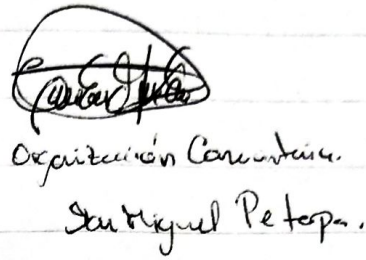 Organización Comunitaria.
San Miguel Petapa.